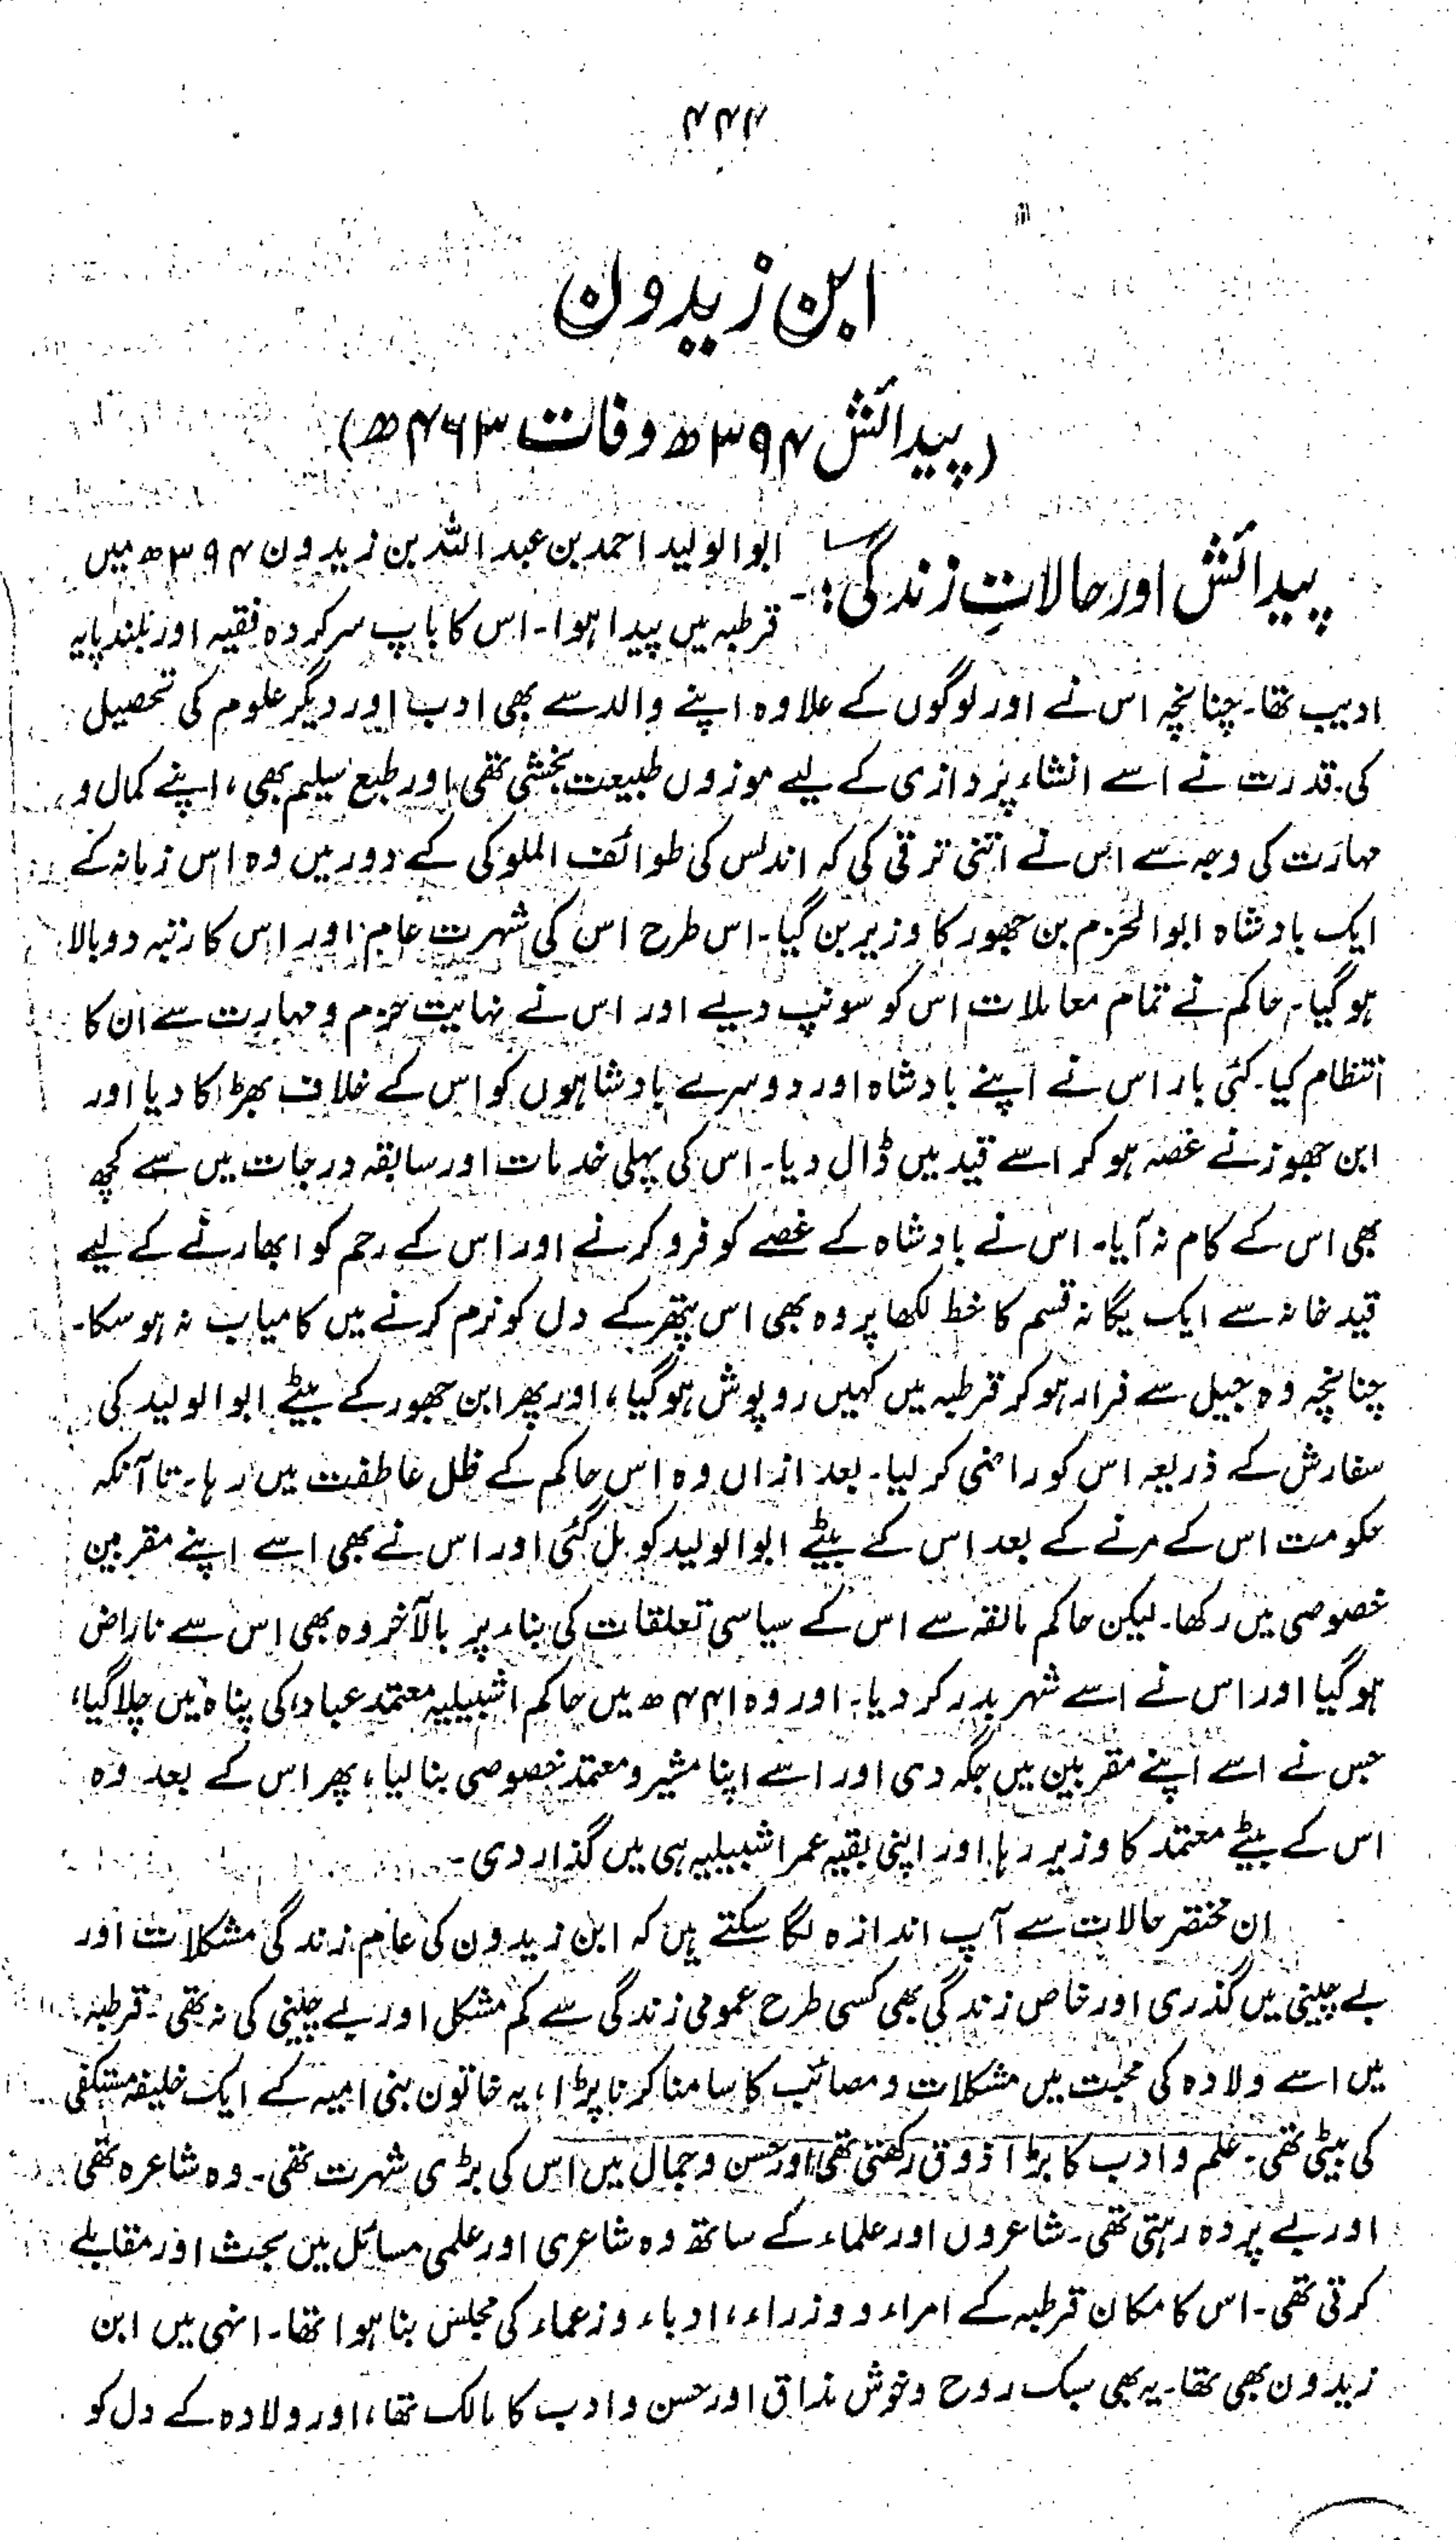 ۴۴۴
ابن زیدون
(پیدائش ۳۹۴ھ وفات ۴۶۳ھ)
پیدائش اور حالاتِ زندگی:- ابوالولید احمد بن عبداللہ بن زیدون ۳۹۴ھ میں
قرطبہ میں پیدا ہوا۔ اس کا باپ سرکردہ فقیہ اور بلند پایہ
ادیب تھا۔ چنانچہ اس نے اور لوگوں کے علاوہ اپنے والد سے بھی ادب اور دیگر علوم کی تحصیل
کی۔ قدرت نے اسے انشاء پردازی کے لیے موزوں طبیعت بخشی تھی اور طبع سلیم بھی، اپنے کمال و
مہارت کی وجہ سے اس نے اتنی ترقی کی کہ اندلس کی طوائف الملوکی کے دور میں وہ اس زمانہ کے
ایک بادشاہ ابوالحزم بن جھور کا وزیر بن گیا۔ اس طرح اس کی شہرت عام اور اس کا رتبہ دوبالا
ہو گیا۔ حاکم نے تمام معاملات اس کو سونپ دیے اور اس نے نہایت حزم و مہارت سے ان کا
انتظام کیا۔ کئی بار اس نے اپنے بادشاہ اور دوسرے بادشاہوں کو اس کے خلاف بھڑکا دیا اور
ابن جھور نے غصہ ہو کر اسے قید میں ڈال دیا۔ اس کی پہلی خدمات اور سابقہ درجات میں سے کچھ
بھی اس کے کام نہ آیا۔ اس نے بادشاہ کے غصے کو فرو کرنے اور اس کے رحم کو ابھارنے کے لیے
قید خانہ سے ایک یگانہ قسم کا خط لکھا پر وہ بھی اس پتھر کے دل کو نرم کرنے میں کامیاب نہ ہو سکا۔
چنانچہ وہ جیل سے فرار ہو کر قرطبہ میں کہیں روپوش ہو گیا، اور پھر ابن جھور کے بیٹے ابوالولید کی
سفارش کے ذریعہ اس کو راضی کر لیا۔ بعد ازاں وہ اس حاکم کے ظل عاطفت میں رہا۔ تا آنکہ
حکومت اس کے مرنے کے بعد اس کے بیٹے ابوالولید کو مل گئی اور اس نے بھی اسے اپنے مقربین
خصوصی میں رکھا۔ لیکن حاکم مالقہ سے اس کے سیاسی تعلقات کی بناء پر بالآخر وہ بھی اس سے ناراض
ہو گیا اور اس نے اسے شہر بدر کر دیا۔ اور وہ ۴۴۱ھ میں حاکم اشبیلیہ معتمد عباد کی پناہ میں چلا گیا،
جس نے اسے اپنے مقربین میں جگہ دی اور اسے اپنا مشیر و معتمد خصوصی بنا لیا، پھر اس کے بعد وہ
اس کے بیٹے معتمد کا وزیر رہا اور اپنی بقیہ عمر اشبیلیہ ہی میں گذار دی۔
ان مختصر حالات سے آپ اندازہ لگا سکتے ہیں کہ ابن زیدون کی عام زندگی مشکلات اور
بے چینی میں گذری اور خاص زندگی بھی کسی طرح عمومی زندگی سے کم مشکل اور بے چینی کی نہ تھی۔ قرطبہ
میں اسے ولادہ کی محبت میں مشکلات و مصائب کا سامنا کرنا پڑا، یہ خاتون بنی امیہ کے ایک خلیفہ مستکفی
کی بیٹی تھی۔ علم و ادب کا بڑا ذوق رکھتی تھی اور حسن و جمال میں اس کی بڑی شہرت تھی۔ وہ شاعرہ تھی
اور بے پردہ رہتی تھی۔ شاعروں اور علماء کے ساتھ وہ شاعری اور علمی مسائل میں بحث اور مقابلے
کرتی تھی۔ اس کا مکان قرطبہ کے امراء و وزراء، ادباء و زعماء کی مجلس بنا ہوا تھا۔ انہی میں ابن
زیدون بھی تھا۔ یہ بھی سبک روح و خوش مذاق اور حسن و ادب کا مالک تھا، اور ولادہ کے دل کو